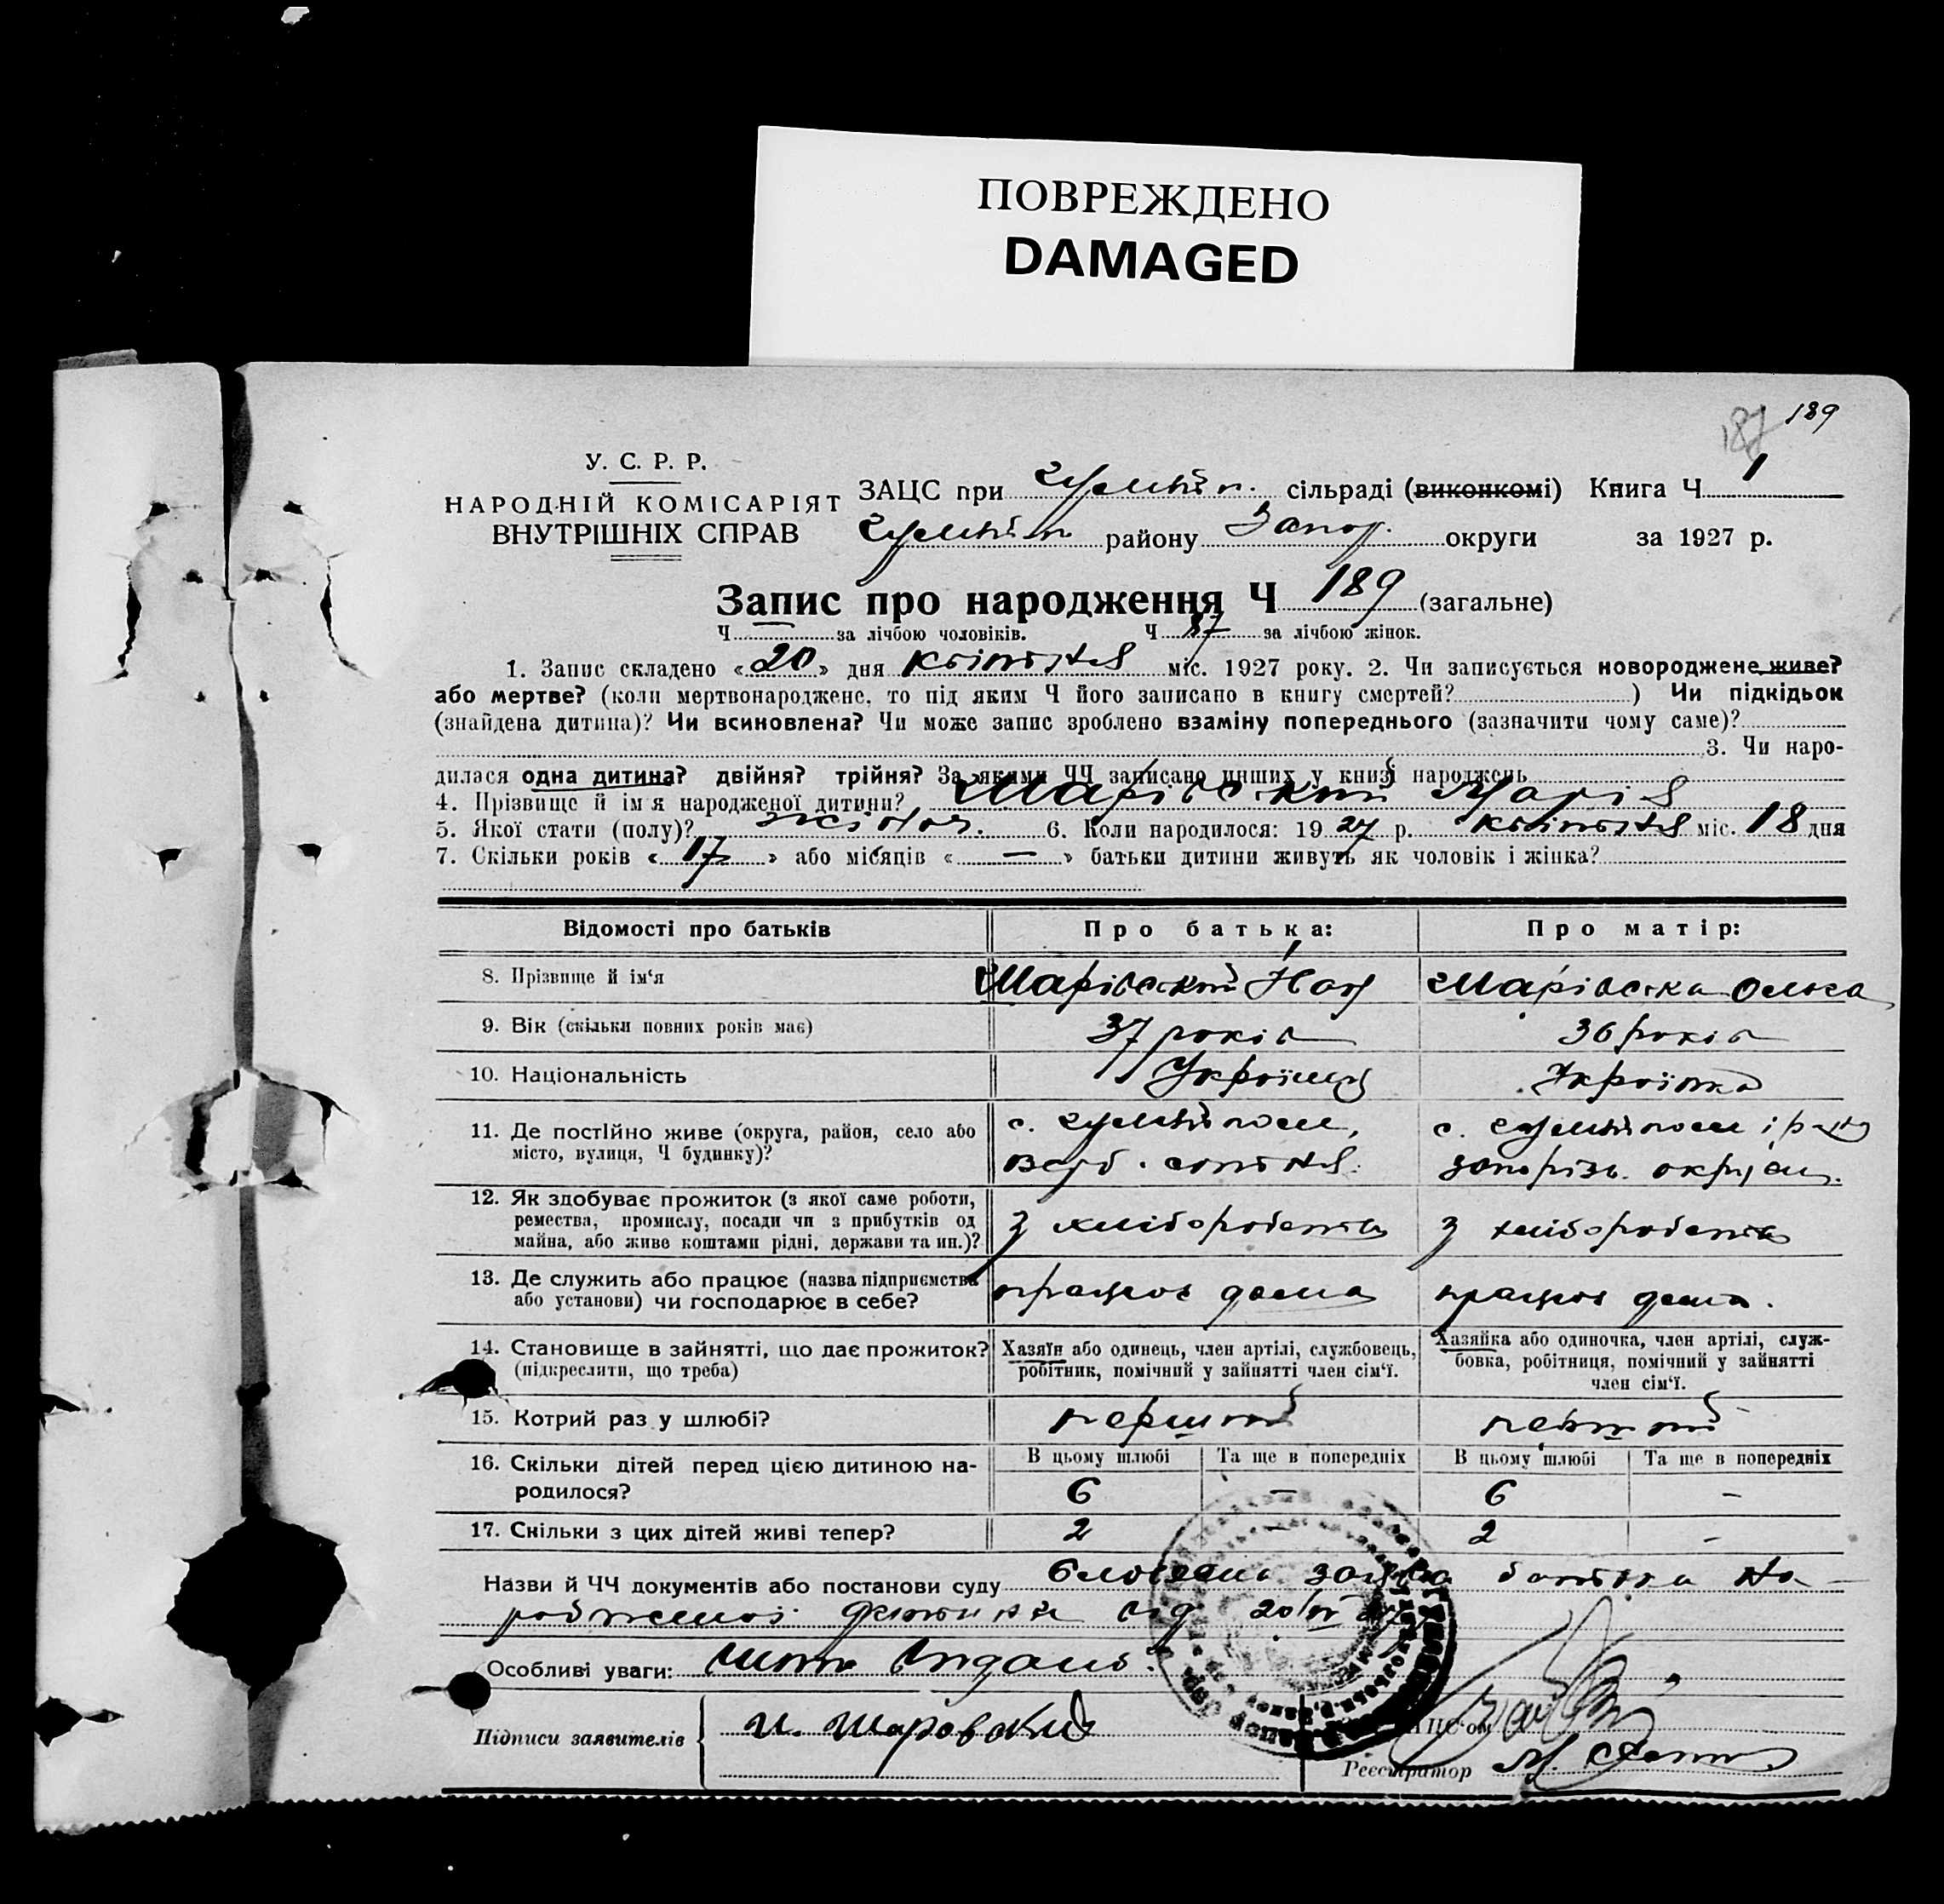 ПОВРЕЖДЕНО
DAMAGED
187 189
У. С. Р. Р.
НАРОДНІЙ КОМІСАРІЯТ
ВНУТРІШНІХ СПРАВ
ЗАЦС при Гуляйп. сільраді (виконкомі) Книга Ч 1
Гуляйп району Запор. округи за 1927 р.
Запис про народження Ч 189 (загальне)
Ч за лічбою чоловіків. Ч 87 за лічбою жінок.
1. Запис складено «20» дня квітня міс. 1927 року. 2. Чи записується новороджене живе?
або мертве? (коли мертвонароджене, то під яким Ч його записано в книгу смертей? ) Чи підкідьок
(знайдена дитина)? Чи всиновлена? Чи може запис зроблено взаміну попереднього (зазначити чому саме)?
3. Чи наро-
дилася одна дитина? двійня? трійня? За якими ЧЧ записано инших у книзі народжень
4. Прізвище й ім'я народженої дитини? Шарівський Марія
5. Якої стати (полу)? жіноч. 6. Коли народилося: 1927 р. квітня міс. 18 дня
7. Скільки років «17» або місяців «—» батьки дитини живуть як чоловік і жінка?
Відомості про батьків Про батька: Про матір:
8. Прізвище й ім'я Шарівський Шарівська Ольга
9. Вік (скільки повних років має) 37 років 36 років
10. Національність Українець Українка
11. Де постійно живе (округа, район, село або с. Гуляйполе, с. Гуляйполе
місто, вулиця, Ч будинку)? запорізь. округи.
12. Як здобуває прожиток (з якої саме роботи,
ремества, промислу, посади чи з прибутків од з хліборобства з хліборобства
майна, або живе коштами рідні, держави та ин.)?
13. Де служить або працює (назва підприємства працює дома працює дома.
або установи) чи господарює в себе?
14. Становище в зайнятті, що дає прожиток? Хазяїн або одинець, член артілі, службовець, Хазяйка або одиночка, член артілі, служ-
(підкреслити, що треба) робітник, помічний у зайнятті член сім'ї. бовка, робітниця, помічний у зайнятті
член сім'ї.
15. Котрий раз у шлюбі? перший перший
16. Скільки дітей перед цією дитиною на- В цьому шлюбі Та ще в попередніх В цьому шлюбі Та ще в попередніх
родилося? 6 — 6 -
17. Скільки з цих дітей живі тепер? 2 — 2 -
Назви й ЧЧ документів або постанови суду заява батька на-
родженої дитини від 20/IV 27
Особливі уваги:
Підписи заявителів И. Шаровский
Реєстратор